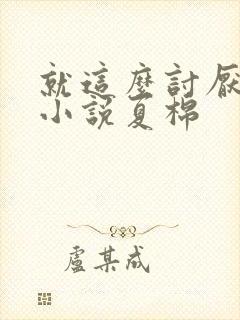 就這麼討厭
小說夏棉
盧某成